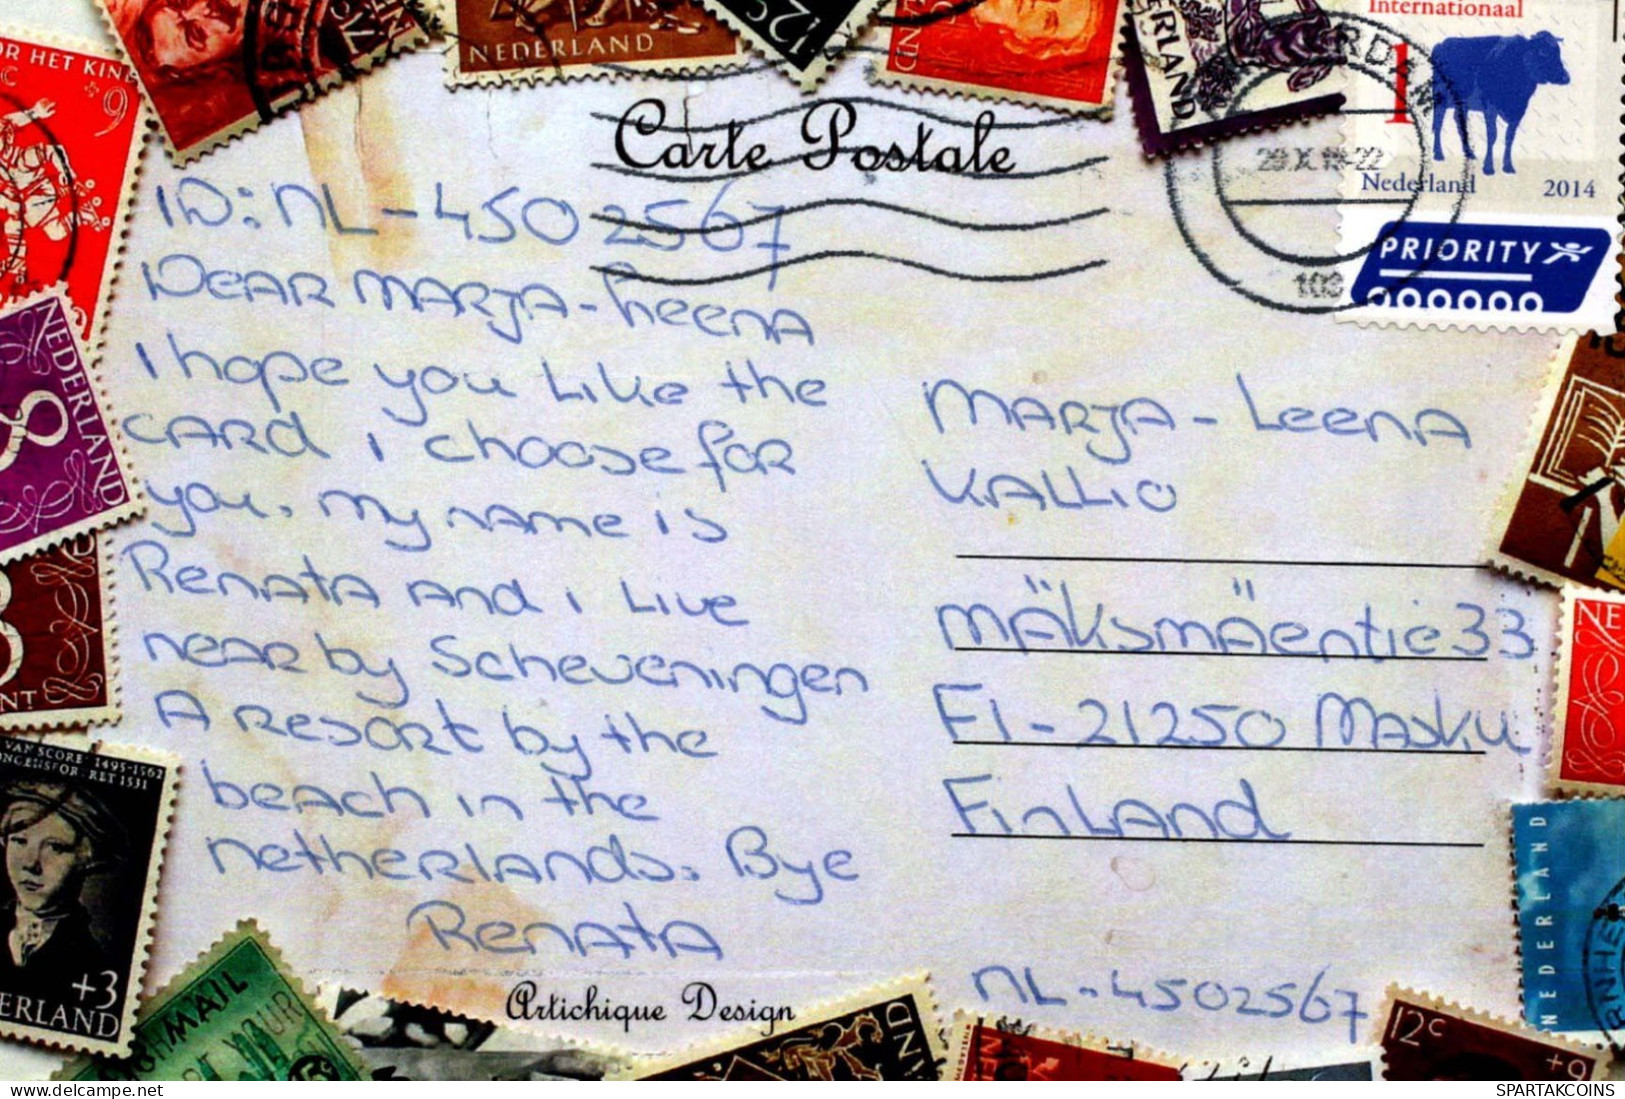 Carte Postale
ID: NL-4502567
DEAR MARJA-Leena
I hope you Like the
CARD i choose for
you. My name is
Renata and i Live
near by Scheveningen
A Resort by the
beach in the
netherlands. Bye
Renata
Artichique Design
MARJA-Leena
KALLIO
MÄKSMÄENTIE 33
FI-21250 Masku
FinLand
NL-4502567
Internationaal
1
Nederland 2014
PRIORITY
29.X.18-22
103
NEDERLAND
12c
OR HET KIN
c +9
NEDERLAND
8
VAN SCORE 1495-1562
RET 1531
+3
ERLAND
MAIL
NEDERLAND
12c
+9
NE
delcampe.net
SPARTAKCOINS